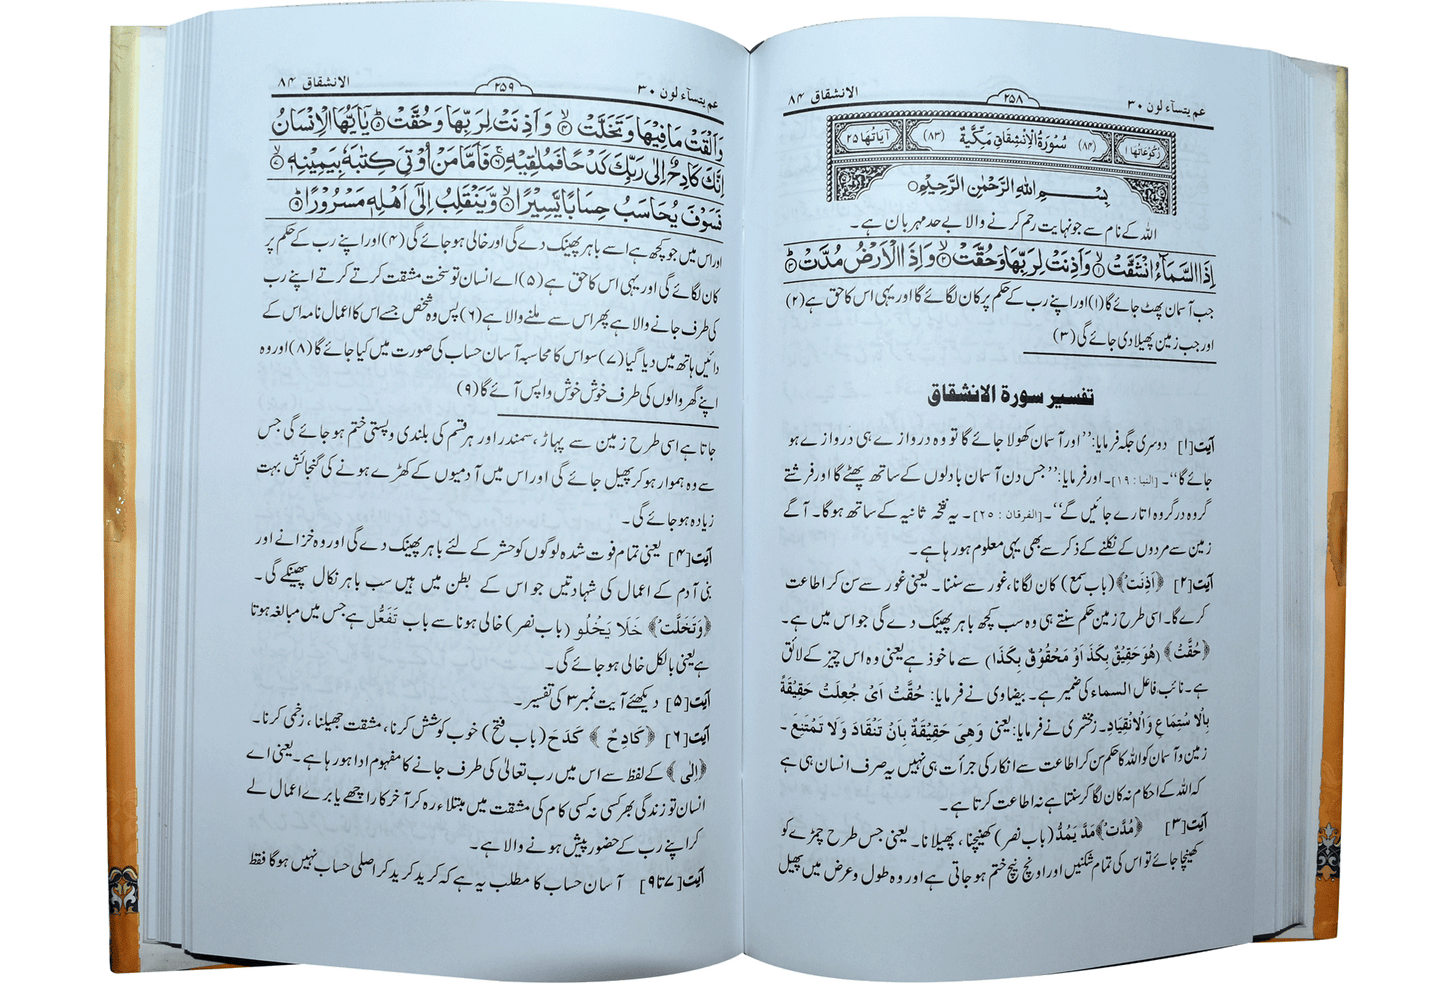 عم یتسآء لون ۳۰ ۲۵۸ الانشقاق ۸۴
رکوعاتها ۱ (۸۴) سُوْرَةُ الْاِنْشِقَاقِ مَكِّيَّةٌ (۸۳) آیاتها ۲۵
بِسْمِ اللهِ الرَّحْمٰنِ الرَّحِيْمِ
اللہ کے نام سے جو نہایت رحم کرنے والا بے حد مہربان ہے۔
اِذَا السَّمَآءُ انْشَقَّتْ ۙ۱ وَاَذِنَتْ لِرَبِّهَا وَحُقَّتْ ۙ۲ وَاِذَا الْاَرْضُ مُدَّتْ ۙ۳
جب آسمان پھٹ جائے گا (۱) اور اپنے رب کے حکم پر کان لگائے گا اور یہی اس کا حق ہے (۲)
اور جب زمین پھیلا دی جائے گی (۳)
تفسیر سورة الانشقاق
آیت[۱] دوسری جگہ فرمایا: ’’اور آسمان کھولا جائے گا تو وہ دروازے ہی دروازے ہو
جائے گا‘‘۔ [النبا : ۱۹]۔ اور فرمایا: ’’جس دن آسمان بادلوں کے ساتھ پھٹے گا اور فرشتے
گروہ در گروہ اتارے جائیں گے‘‘۔ [الفرقان : ۲۵]۔ یہ نفخہ ثانیہ کے ساتھ ہوگا۔ آگے
زمین سے مردوں کے نکلنے کے ذکر سے بھی یہی معلوم ہو رہا ہے۔
آیت[۲] ﴿اَذِنَتْ﴾ (باب سمع) کان لگانا، غور سے سننا۔ یعنی غور سے سن کر اطاعت
کرے گا۔ اسی طرح زمین حکم سنتے ہی وہ سب کچھ باہر پھینک دے گی جو اس میں ہے۔
﴿حُقَّتْ﴾ (هُوَ حَقِيْقٌ بِكَذَا اَوْ مَحْقُوْقٌ بِكَذَا) سے ماخوذ ہے یعنی وہ اس چیز کے لائق
ہے۔ نائب فاعل السماء کی ضمیر ہے۔ بیضاوی نے فرمایا: حُقَّتْ اَیْ جُعِلَتْ حَقِيْقَةً
بِالْاِسْتِمَاعِ وَالْاِنْقِيَادِ۔ زمخشری نے فرمایا: یعنی وَهِیَ حَقِيْقَةٌ بِاَنْ تَنْقَادَ وَلَا تَمْتَنِعَ۔
زمین و آسمان کو اللہ کا حکم سن کر اطاعت سے انکار کی جرأت ہی نہیں یہ صرف انسان ہی ہے
کہ اللہ کے احکام نہ کان لگا کر سنتا ہے نہ اطاعت کرتا ہے۔
آیت[۳] ﴿مُدَّتْ﴾ مَدَّ يَمُدُّ (باب نصر) کھینچنا، پھیلانا۔ یعنی جس طرح چمڑے کو
کھینچا جائے تو اس کی تمام شکنیں اور اونچ نیچ ختم ہو جاتی ہے اور وہ طول و عرض میں پھیل
عم یتسآء لون ۳۰ ۲۵۹ الانشقاق ۸۴
وَاَلْقَتْ مَا فِيْهَا وَتَخَلَّتْ ۙ۴ وَاَذِنَتْ لِرَبِّهَا وَحُقَّتْ ؕ۵ يٰۤاَيُّهَا الْاِنْسَانُ
اِنَّكَ كَادِحٌ اِلٰى رَبِّكَ كَدْحًا فَمُلٰقِيْهِ ۚ۶ فَاَمَّا مَنْ اُوْتِيَ كِتٰبَهٗ بِيَمِيْنِهٖ ۙ۷
فَسَوْفَ يُحَاسَبُ حِسَابًا يَّسِيْرًا ۙ۸ وَّيَنْقَلِبُ اِلٰٓى اَهْلِهٖ مَسْرُوْرًا ؕ۹
اور اس میں جو کچھ ہے اسے باہر پھینک دے گی اور خالی ہو جائے گی (۴) اور اپنے رب کے حکم پر
کان لگائے گی اور یہی اس کا حق ہے (۵) اے انسان تو سخت مشقت کرتے کرتے اپنے رب
کی طرف جانے والا ہے پھر اس سے ملنے والا ہے (۶) پس وہ شخص جسے اس کا اعمال نامہ اس کے
دائیں ہاتھ میں دیا گیا (۷) سو اس کا محاسبہ آسان حساب کی صورت میں کیا جائے گا (۸) اور وہ
اپنے گھر والوں کی طرف خوش خوش واپس آئے گا (۹)
جاتا ہے اسی طرح زمین سے پہاڑ، سمندر اور ہر قسم کی بلندی و پستی ختم ہو جائے گی جس
سے وہ ہموار ہو کر پھیل جائے گی اور اس میں آدمیوں کے کھڑے ہونے کی گنجائش بہت
زیادہ ہو جائے گی۔
آیت[۴] یعنی تمام فوت شدہ لوگوں کو حشر کے لئے باہر پھینک دے گی اور وہ خزانے اور
بنی آدم کے اعمال کی شہادتیں جو اس کے بطن میں ہیں سب باہر نکال پھینکے گی۔
﴿وَتَخَلَّتْ﴾ خَلَا يَخْلُو (باب نصر) خالی ہونا سے باب تَفَعُّل ہے جس میں مبالغہ ہوتا
ہے یعنی بالکل خالی ہو جائے گی۔
آیت[۵] دیکھئے آیت نمبر ۳ کی تفسیر۔
آیت[۶] ﴿كَادِحٌ﴾ كَدَحَ (باب فتح) خوب کوشش کرنا، مشقت جھیلنا، زخمی کرنا۔
﴿اِلٰى﴾ کے لفظ سے اس میں رب تعالیٰ کی طرف جانے کا مفہوم ادا ہو رہا ہے۔ یعنی اے
انسان تو زندگی بھر کسی نہ کسی کام کی مشقت میں مبتلاء رہ کر آخر کار اچھے یا برے اعمال لے
کر اپنے رب کے حضور پیش ہونے والا ہے۔
آیت[۷ تا ۹] آسان حساب کا مطلب یہ ہے کہ کرید کرید کر اصلی حساب نہیں ہوگا فقط